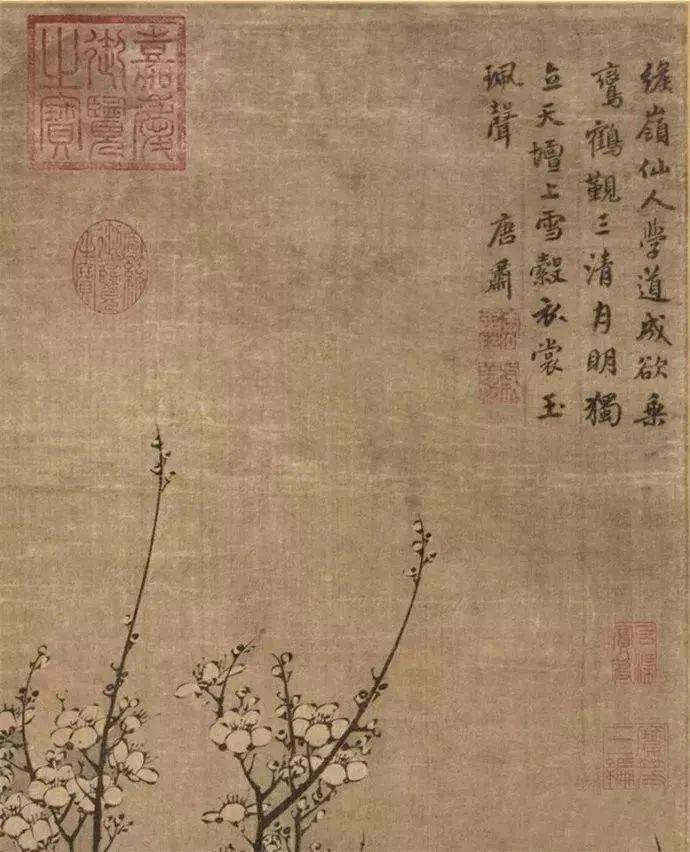 緱嶺仙人学道成欲乘
鸞鶴覲三清月明獨
立天壇上雪縠衣裳玉
珮聲 唐肅
嘉慶
御覽
之寶
宣統
御覽
之寶
寶笈
三編